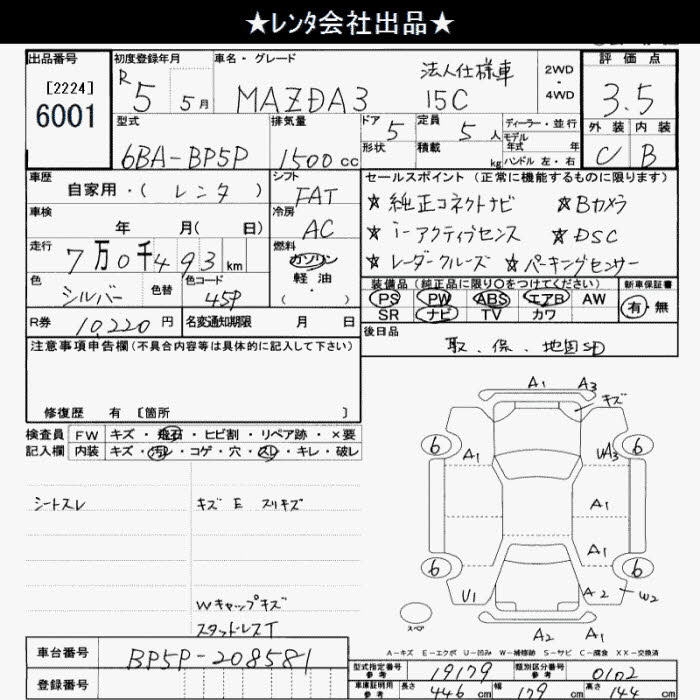 ★レンタ会社出品★
出品番号 初度登録年月 車名・グレード 評価点
[2224] 6001
R5 5月 MAZDA3 法人仕様車 15C 2WD・4WD 3.5
型式 排気量 ドア 5 定員 5人 ディーラー・並行 外装 内装
モデル年式 年
6BA-BP5P 1500cc 形状 積載 kg ハンドル 左・右 C B
車歴 シフト セールスポイント (正常に機能するものに限ります)
自家用・(レンタ) FAT ★純正コネクトナビ ★Bカメラ
車検 冷房
年 月( 日) AC ★i-アクティブセンス ★DSC
走行 燃料
7万0千493km ガソリン・軽油 ( ) ★レーダークルーズ ★パーキングセンサー
色 色替 色コード 装備品(純正品に限り○をつけてください) 新車保証書
シルバー 45P PS PW ABS エアB AW 有・無
SR ナビ TV カワ
R券 10220円 名変通知期限 月 日 後日品
取.保.地図SD
注意事項申告欄(不具合内容等は具体的に記入して下さい)
修復歴 有 [箇所 ]
検査員 FW キズ・飛石・ヒビ割・リペア跡・×要
記入欄 内装 キズ・汚レ・コゲ・穴・スレ・キレ・破レ
シートスレ キズ E スリキズ
Wキャップキズ
スタッドレスT
A1 A3 キズ
6 6
A1 UA3
A1
A1
6 6
U1 A2 W2
スペア
A2 A1
A-キズ E-エクボ U-凹み W-補修跡 S-サビ C-腐食 XX-交換済
車台番号 BP5P-208581
型式指定番号 参考 19179 類別区分番号 参考 0102
登録番号 車庫証明用 参考 長さ 446cm 幅 179cm 高さ 144cm